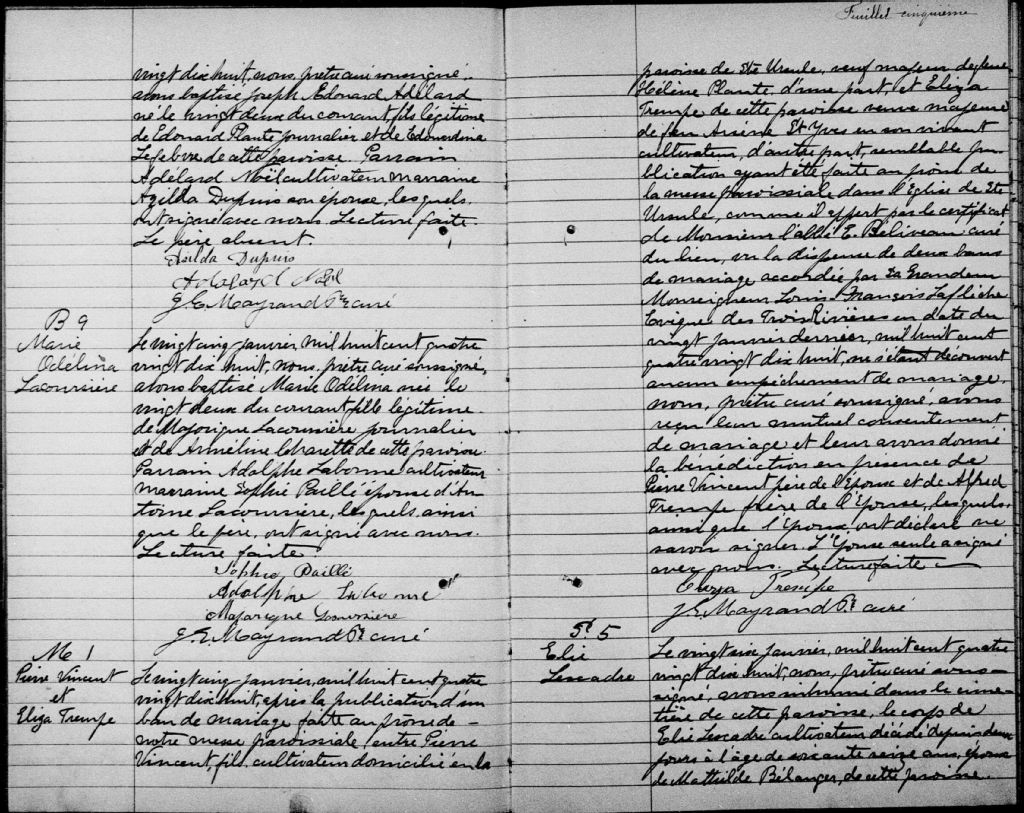 vingt dix huit, nous, prêtre curé soussigné,
avons baptisé Joseph Edouard Adélard
né le vingt deux du courant, fils légitime
de Edouard Plante journalier et de Edouardina
Lefebvre de cette paroisse. Parrain
Adélard Noël cultivateur marraine
Azilda Dupuis son épouse, lesquels
ont signé avec nous. Lecture faite.
Le père absent.
Asilda Dupuis
Adelard Noël
J. E. Mayrand Ptre curé
B 9
Marie
Odélina
Lacoursière
Le vingt cinq janvier, mil huit cent quatre
vingt dix huit, nous, prêtre curé soussigné,
avons baptisé Marie Odélina née le
vingt deux du courant, fille légitime
de Majorique Lacoursière journalier
et de Arméline de cette paroisse
Parrain Adolphe Labonne cultivateur
marraine Sophie Paillé épouse d'An
toine Lacoursière, lesquels, ainsi
que le père, ont signé avec nous.
Lecture faite.
Sophie Paillé
Adolphe
Majorique Lacoursière
J. E. Mayrand Ptre curé
M 1
Pierre Vincent
et
Eliza Trempe
Le vingt cinq janvier, mil huit cent quatre
vingt dix huit, après la publication d'un
ban de mariage faite au prône de
notre messe paroissiale, entre Pierre
Vincent, fils, cultivateur domicilié en la
Feuillet cinquième
paroisse de Ste Ursule, veuf majeur de feue
Hélène Plante, d'une part, et Eliza
Trempe de cette paroisse veuve majeure
de feu Arsène St Yves en son vivant
cultivateur, d'autre part, semblable pu-
blication ayant été faite au prône de
la messe paroissiale dans l'Eglise de Ste
Ursule, comme il appert par le certificat
de Monsieur l'abbé E. Béliveau curé
du lieu, vu la dispense de deux bans
de mariage accordée par Sa Grandeur
Monseigneur Louis-François Laflèche
Evêque des Trois Rivières en date du
vingt janvier dernier, mil huit cent
quatre vingt dix huit, ne s'étant découvert
aucun empêchement de mariage,
nous, prêtre curé soussigné, avons
reçu leur mutuel consentement
de mariage et leur avons donné
la bénédiction en présence de
Pierre Vincent père de l'Epoux et de Alfred
Trempe frère de l'Epouse, lesquels,
ainsi que l'époux ont déclaré ne
savoir signer. L'Epouse seule a signé
avec nous. Lecture faite
Eliza Trempe
J. E. Mayrand Ptre curé
S. 5
Elie
Lescadre
Le vingt six janvier, mil huit cent quatre
vingt dix huit, nous, prêtre curé sous-
signé avons inhumé dans le cime-
tière de cette paroisse, le corps de
Elie Lescadre cultivateur décédé depuis deux
jours à l'âge de soixante seize ans, époux
de Mathilde Bélanger, de cette paroisse.